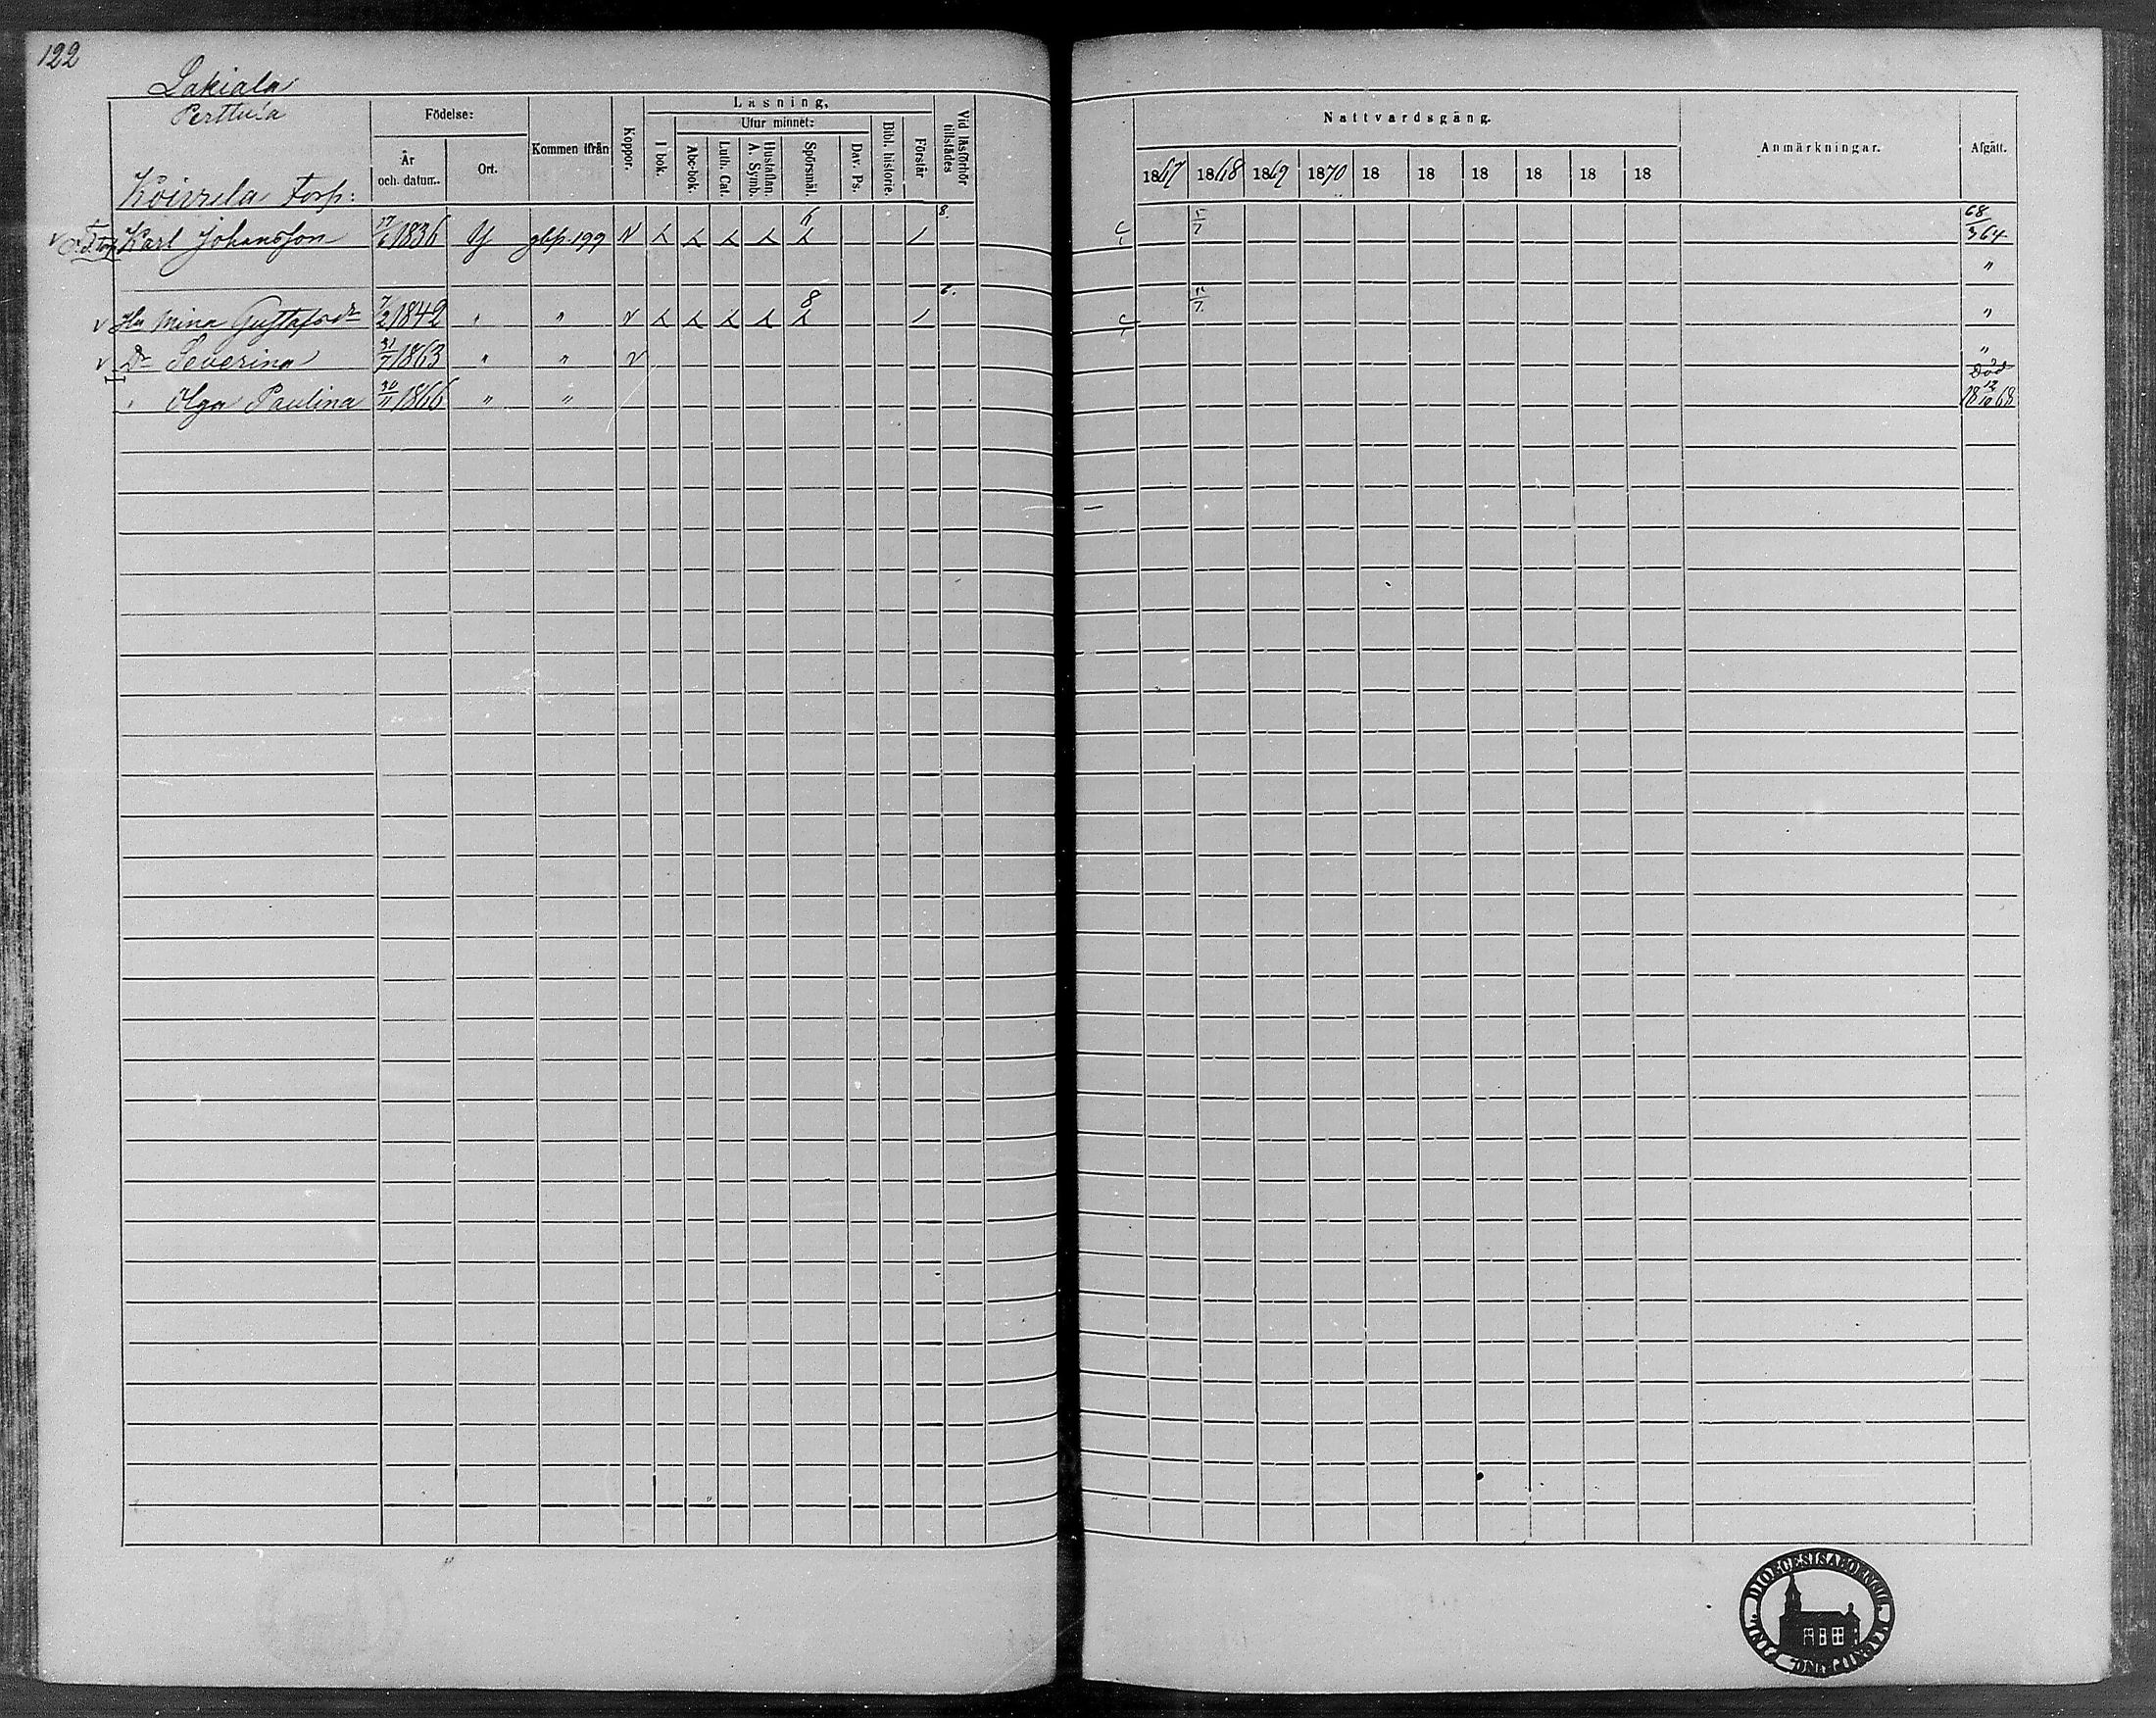 122
Lakiala
Perttula
Födelse:
År och datum.
Ort.
Kommen ifrån
Koppor.
Läsning,
I bok.
Utur minnet:
Abc-bok.
Luth. Cat.
Hustaflan. A. Symb.
Spörsmål.
Dav. Ps.
Bibl. historie.
Förstår
Vid läsförhör tillstädes
Nattvardsgång.
1867 1868 1869 1870 18 18 18 18 18 18
Anmärkningar.
Afgått.
Torp:
Karl Johansson 17/6 1836 Y gbp. 199 v 6 8. 5/7 68/3 64
"
v Hu Mina Gustafsdr 7/2 1842 " " v 8 6. 5/7 "
v Dr Severina 31/7 1863 " " v "
" Olga Paulina 30/11 1866 " " Död 18 12/10 68